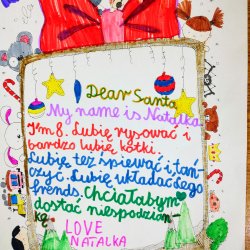 Dear Santa
My name is Natalka
I'm 8. Lubię rysować i
bardzo lubię kotki.
Lubię też śpiewać i tań-
czyć. Lubię układać lego
frends. Chciałabym
dostać niespodzian-
kę.
LOVE
NATALKA